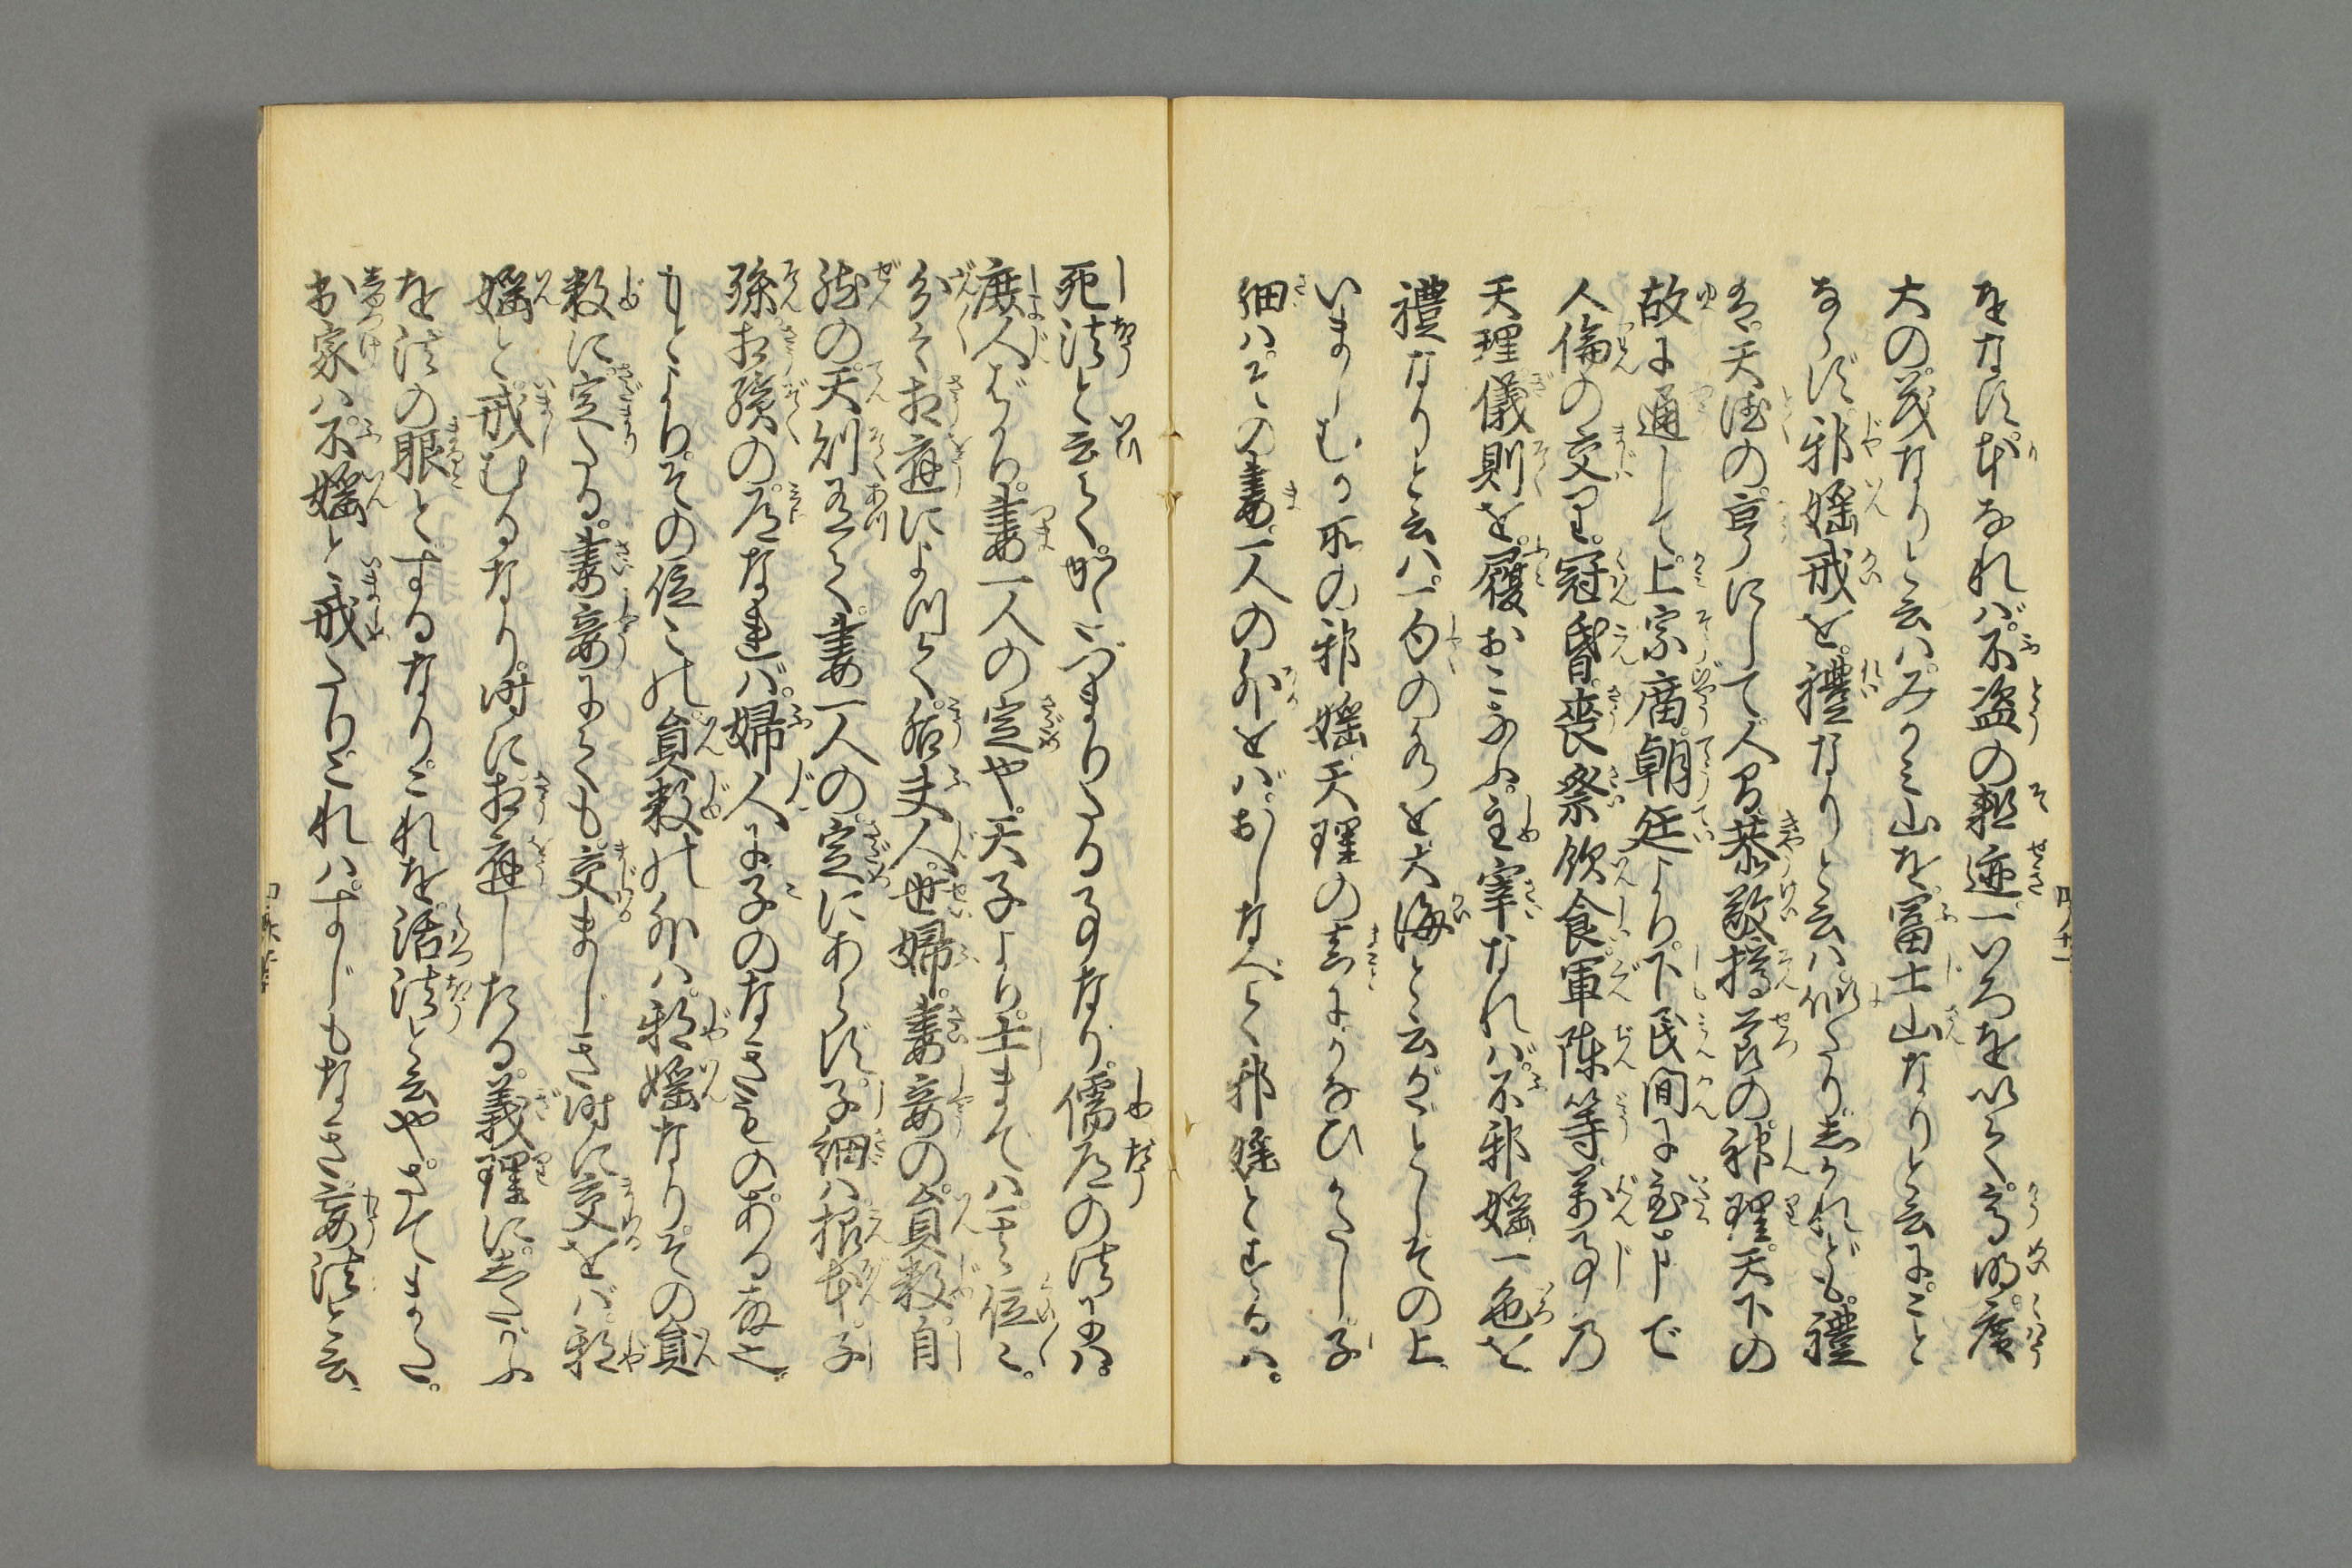 をなす。本なれバ。不盗の麁迹。一いろを以て。高明廣
大の。義なりと云ハ。みかミ山を。冨士山なりと云に。こと
ならず。邪婬戒を。禮なりと云ハ。似たり。志かれども。禮
は。天徳の。亨にして。人の恭敬撙節の。神理。天下の
故に通して。上宗廟。朝廷より。下民間に至まで
人倫の交り。冠昏。喪祭。飲食。軍陣等。萬事乃
天理儀則を。履おこなふ。主宰なれバ。不邪婬一色を
禮なりと云ハ。一勺の水を大海と云がごとし。その上
いましむる所の邪婬。天理の真にかなひがたし。子
細ハ。その妻。一人の外をバ。おしなべて邪婬とするハ。
死法と云て。かたづまりたる事なり。儒道の法にハ。
庶人ばかり。妻一人の定や。天子より。士までハ。その位〳〵。
分〻相應によつて。后夫人。世婦。妻妾の。員数。自
然の。天則有て。妻一人の。定にあらず。子細ハ。根本。子
孫相續の。道なれバ。婦人に子のなきものある故也。
もとより。その位〻の。員数の外ハ。邪婬なり。その員
数に定たる。妻妾にても。交まじき時に交をバ。邪
婬と。戒むるなり。時に相應したる。義理に。志たがふ
を法の眼とするなり。これを。活法と云や。さてまた。
出家ハ。不婬と。戒たり。これハ。まじもなき。妄法と云、